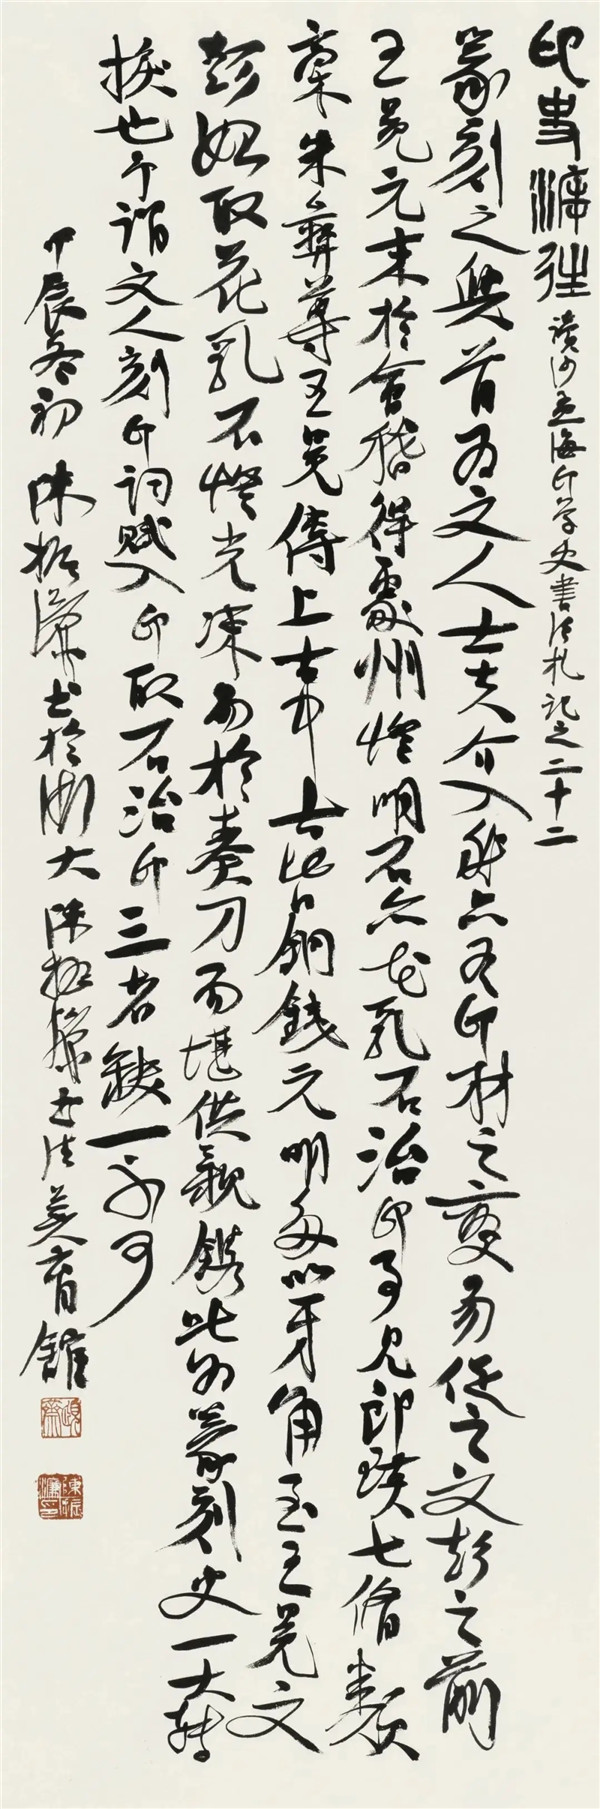 印史溯往 讀沙孟海印學史書法札記之二十二
篆刻之興首為文人士夫介入然亦有印材之變易促之文彭之前
王冕元末於會稽得處州燈明石亦花乳石治印事見郎瑛七修類
稾朱彝尊王冕傳上古中古皆銅錢元明多以牙角至王冕文
彭始取花乳石燈光凍易於奏刀而堪供親鐫此為篆刻史一大轉
捩也乍謂文人刻印詞賦入印取石治印三者缺一不可
甲辰冬初陳振濂書於浙大陳振濂書法美育館
陳振濂印